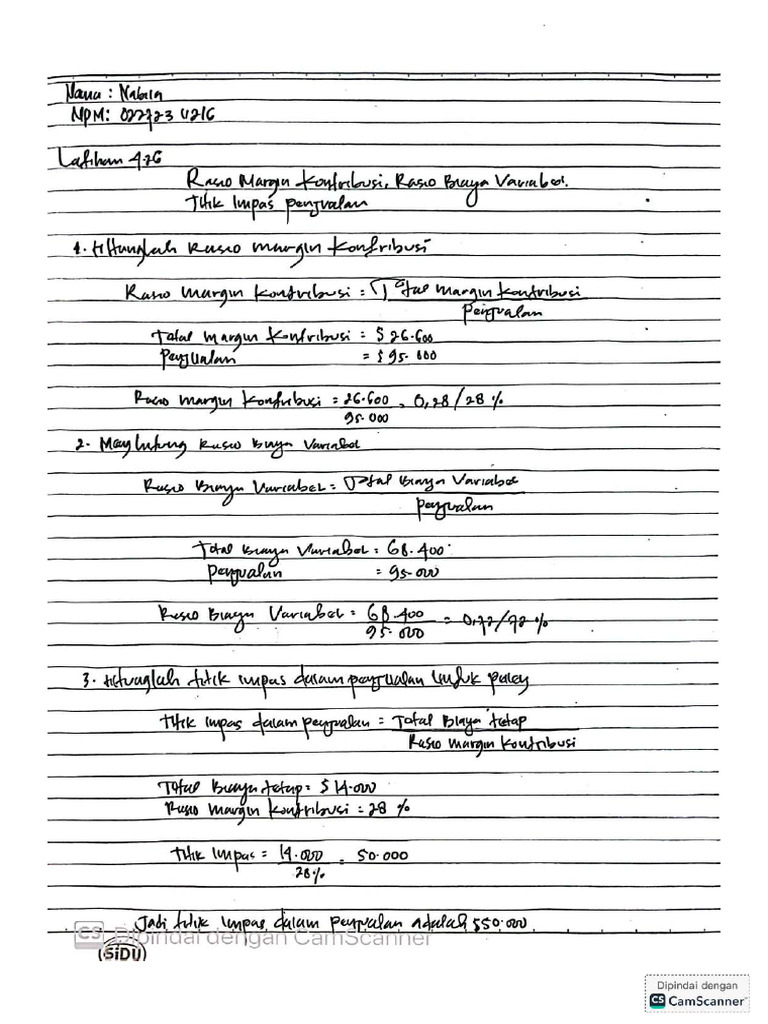 Nama : Nabila
NPM: 022723 4216
Latihan 4.26
Rasio Margin Kontribusi, Rasio Biaya Variabel.
Titik Impas penjualan
1. Hitunglah Rasio margin Kontribusi
Rasio margin Kontribusi = Total margin Kontribusi
Penjualan
Total margin Kontribusi = $ 26.600
Penjualan = $ 95.000
Rasio margin Kontribusi = 26.600 = 0,28 / 28 %
95.000
2. Menghitung Rasio Biaya Variabel
Rasio Biaya Variabel = Total Biaya Variabel
Penjualan
Total Biaya Variabel = 68.400
Penjualan = 95.000
Rasio Biaya Variabel = 68.400 = 0,72 / 72 %
95.000
3. Hitunglah titik impas dalam penjualan untuk
Titik impas dalam penjualan = Total Biaya tetap
Rasio margin Kontribusi
Total Biaya tetap = $ 14.000
Rasio Margin Kontribusi = 28 %
Titik Impas = 14.000 = 50.000
28 %
Jadi titik impas dalam penjualan adalah $50.000
CS Dipindai dengan CamScanner
SiDU
Dipindai dengan
CS CamScanner